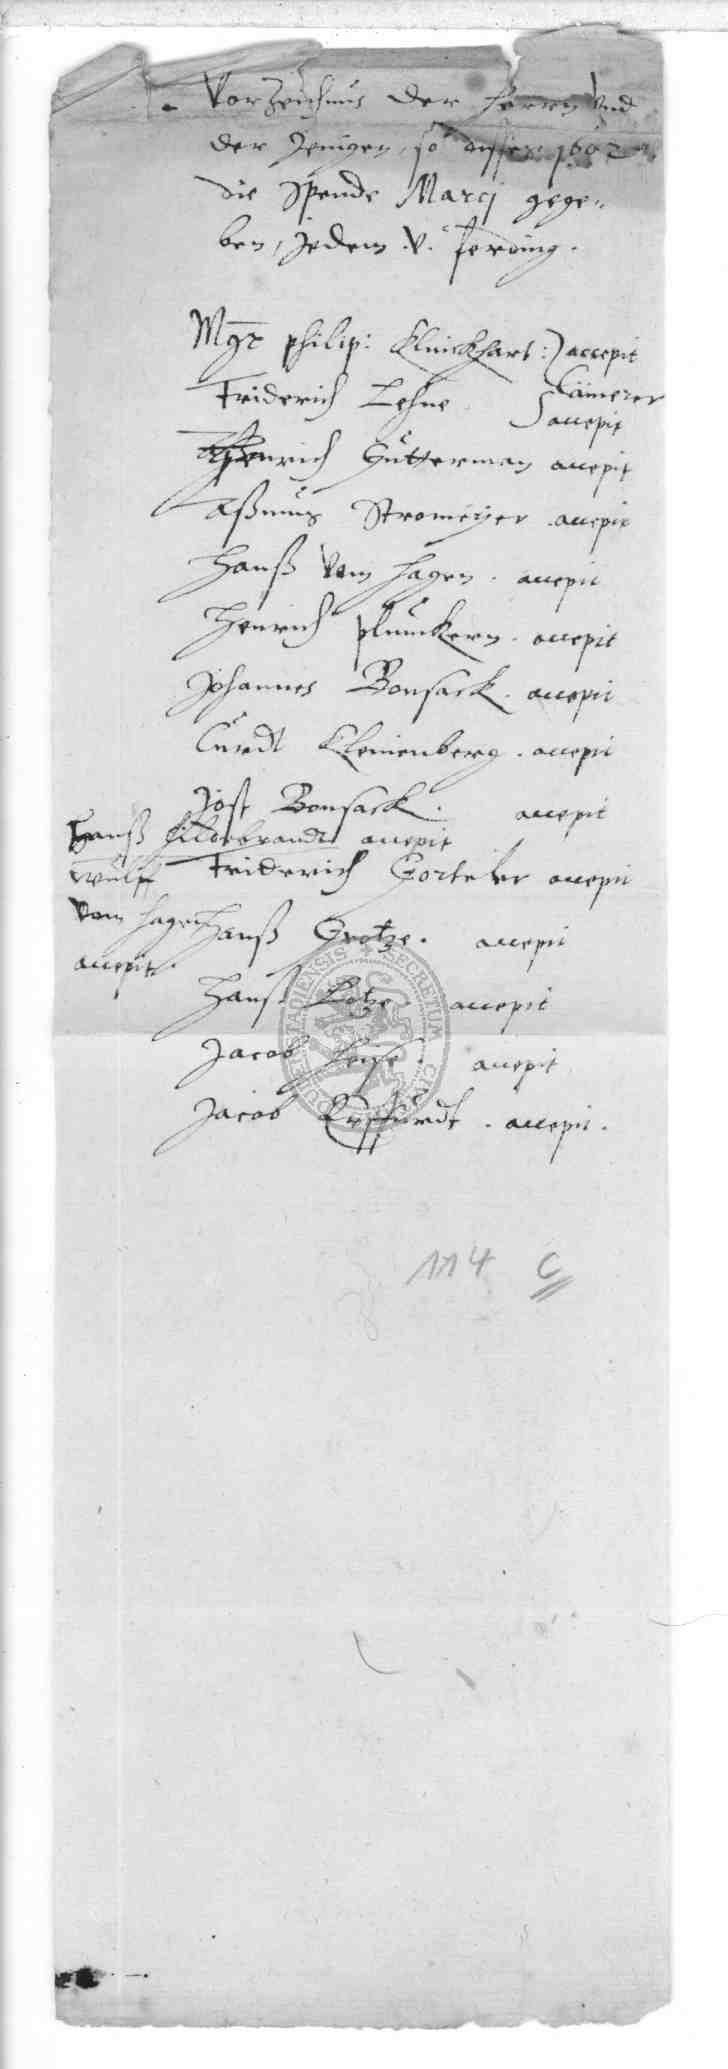 Vorzeichnus der Herrn vnd
der Jenigen, so 1602
die Spende Marcj gege„
ben, Jedem .v. ferding.
Mgr philip: Kluickhart : accepit
Cämerer
Friderich Lehne accepit
Henrich Gütterman accepit
Aßmus Stromeyer accepit
Hanß vom Hagen. accepit
Henrich plunckern. accepit
Johannes Bonsack. accepit
Curdt Kleinenberg. accepit
Jost Bonsack. accepit
Hanß Hildebrandt accepit
Friderich accepit
Wulff
vom Hagen
accepit.
Hanß Grotze. accepit
Hanß Kotze accepit
Jacob accepit
Jacob Erffurdt. accepit.
SECRETUM CIVI
114 C